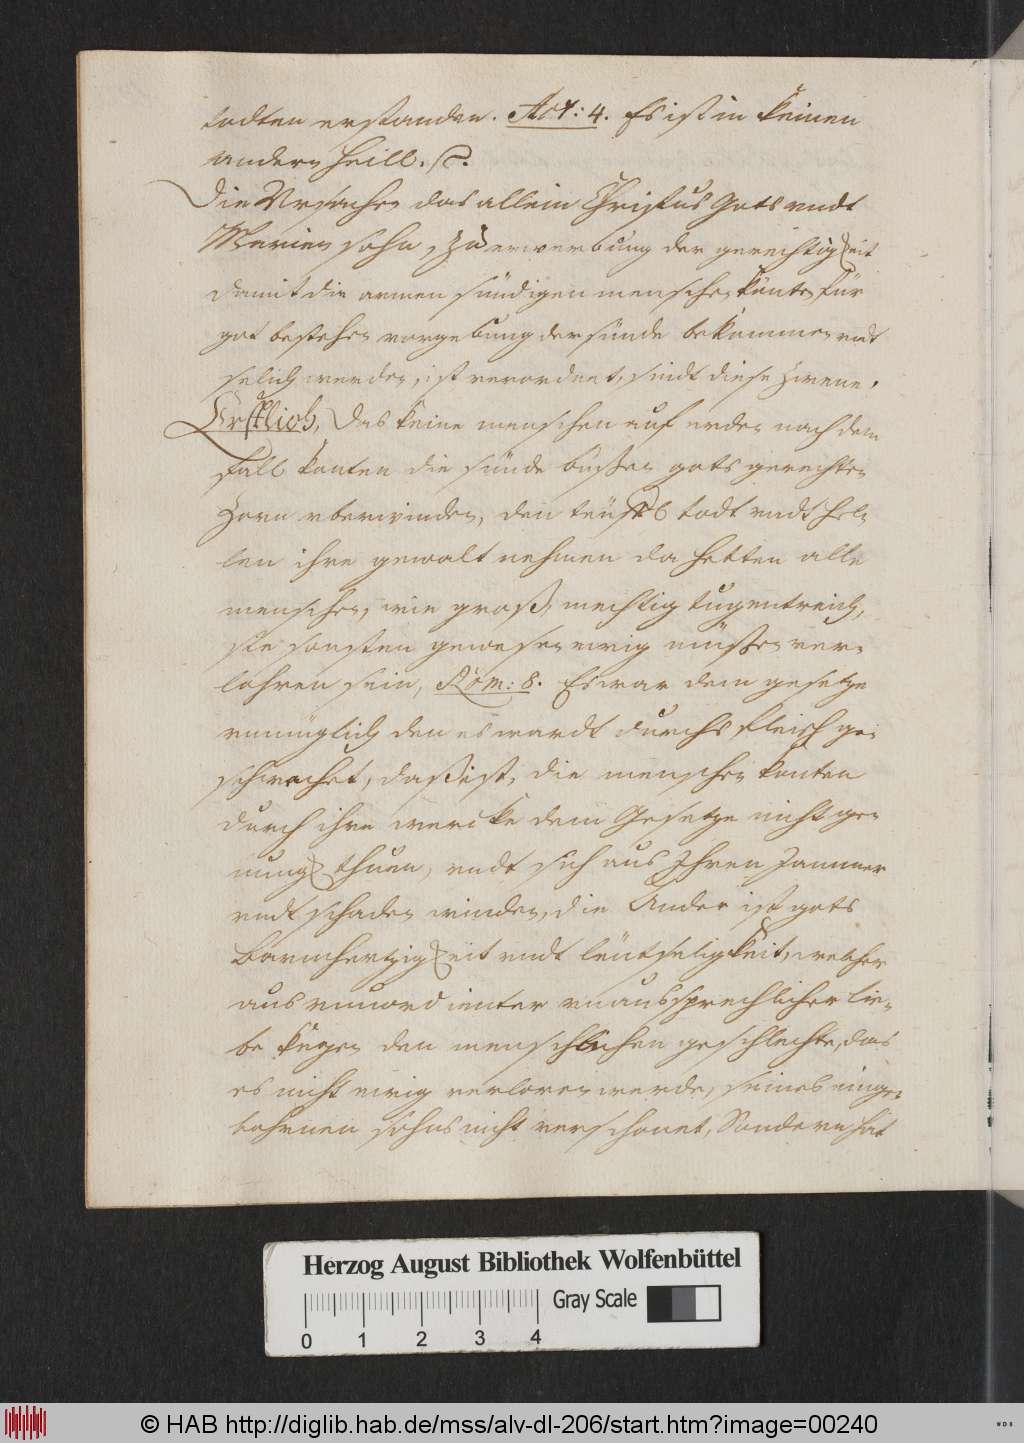 todten erstanden. Act: 4. Es ist in keinen
andern Heill. ꝛc.
Die Vrsachen das allein Christus Gots undt
Marien sohn, zu erwerbung der gerechtigkeit
damit die armen sündigen menschen könten für
got bestehen vorgebung der sünde bekommen undt
selich werden, ist verordnet, sindt diese zwene.
Erstlich, Das keine menschen auf erden nach dem
fall konten die sünde büßen gots gerechten
Zorn vberwinden, den teüffel todt undt hel-
len ihre gewalt nehmen da hetten alle
menschen, wie groß, mechtig tugentreich,
sie sonsten gewesen ewig müssen ver-
lohren sein, Röm: 8. Es war dem gesetze
unmüglich den es wardt durchs fleisch ge-
schwechet, das ist, die menschen konten
durch ihre wercke dem Gesetze nicht ge-
nung thuen, undt sich aus Ihren Jammer
undt schaden winden, die Ander ist gots
Barmhertzigkeit undt leütseligkeit, welcher
aus unuordienter unaussprechlicher lie-
be kegen den menschlichen geschlechte, das
es nicht ewig verloren werde, seines einge-
bohrnen sohns nicht verschonet, Sondern hat
Herzog August Bibliothek Wolfenbüttel
Gray Scale
0 1 2 3 4
© HAB http://diglib.hab.de/mss/alv-dl-206/start.htm?image=00240